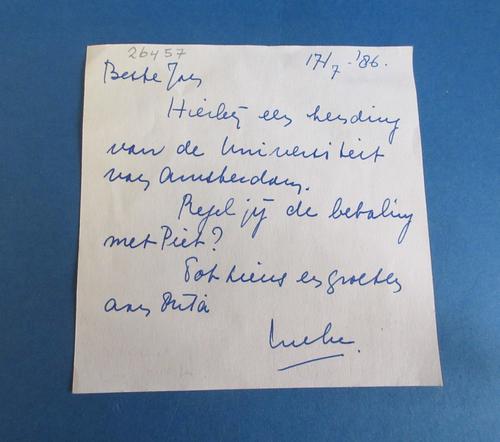 26457
17/7 -'86.
Beste Jos
Hierbij een zending
van de Universiteit
van Amsterdam.
Regel jij de betaling
met Piet?
Tot ziens en groeten
aan